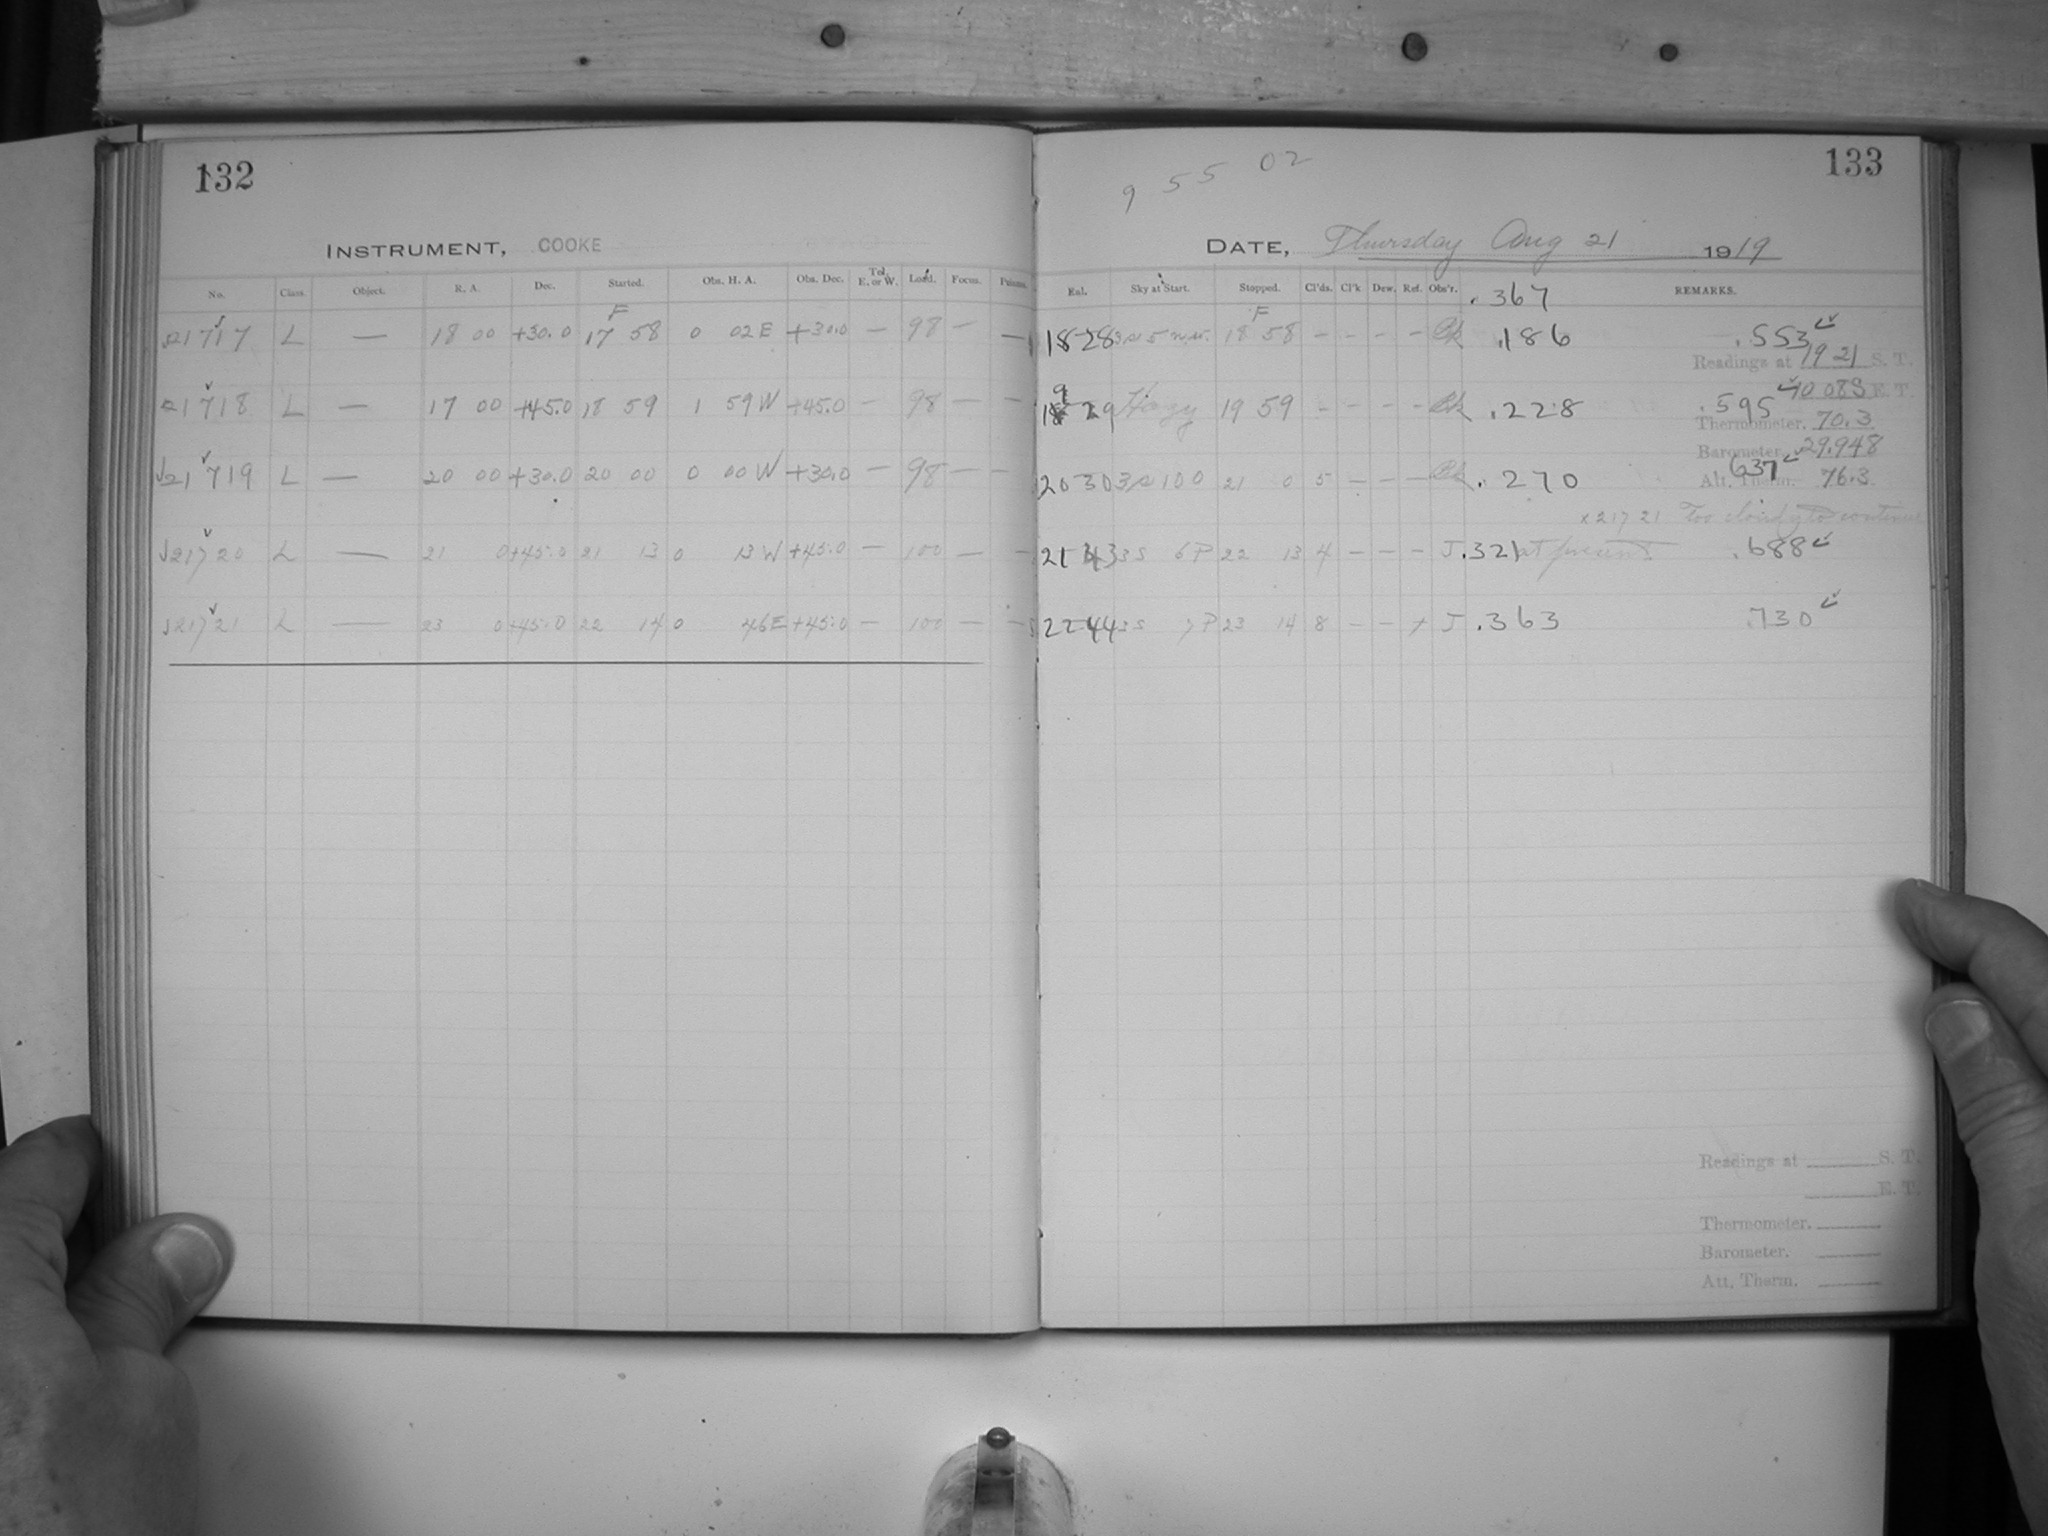 132
INSTRUMENT, COOKE
No. Class. Object. R. A. Dec. Started. Obs. H. A. Obs. Dec. Tel. E. or W. Load. Focus.
21717 L — 18 00 +30.0 F 17 58 0 02 E +30.0 — 98 — —
21718 L — 17 00 +45.0 18 59 1 59 W +45.0 — 98 — —
21719 L — 20 00 +30.0 20 00 0 00 W +30.0 — 98 — —
21720 L — 21 0 +45.0 21 13 0 13 W +45.0 — 100 — —
21721 L — 23 0 +45.0 22 14 0 46 E +45.0 — 100 — —
133
9 55 02
DATE, Thursday Aug 21 1919
Sky at Start. Stopped. Cl'ds. Cl'k Dew. Ref. Obs'r. .367 REMARKS.
18 28 F 18 58 – – – – .186 .553
Readings at 19 21 S. T.
10 08 S E. T.
29 Hazy 19 59 – – – – .228 .595
Thermometer. 70.3
Barometer. 29.948
20 30 3s 100 21 0 5 – – – .270 .637
Att. Therm. 76.3
x 21721 Too cloudy to continue
21 43 3s 6P 22 13 4 – – – J .321 at present .688
22 44 3s 7P 23 14 8 – – + J .363 .730
Readings at S. T.
E. T.
Thermometer.
Barometer.
Att. Therm.